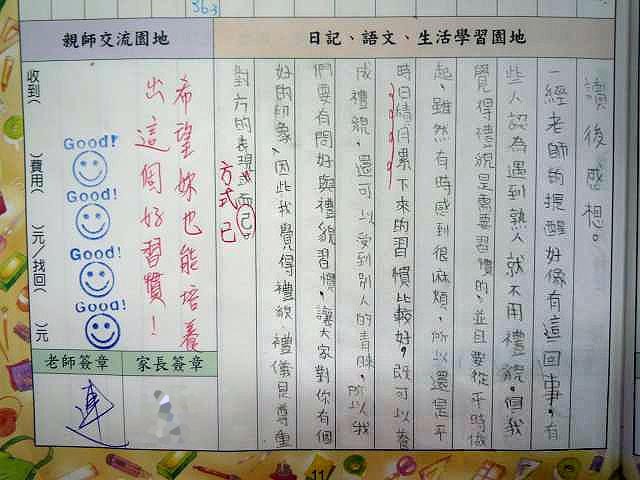 363
日記、語文、生活學習園地
親師交流園地
讀後感想。
一經老師的提醒好像有這回事,有
些人認為遇到熟人就不用禮貌,但我
覺得禮貌是需要習慣的,並且要從平時做
起,雖然有時感到很麻煩,所以還是平
時日積月累下來的習慣比較好,既可以養
成禮貌,還可以受到別人的青睞,所以我
們要有問好與禮貌習慣,讓大家對你有個
好的印象,因此我覺得禮貌、禮儀是尊重
對方的表現而己。
方式已
希望妳也能培養
出這個好習慣!
Good!
Good!
Good!
Good!
收到( )費用( )元/找回( )元
家長簽章
老師簽章
11